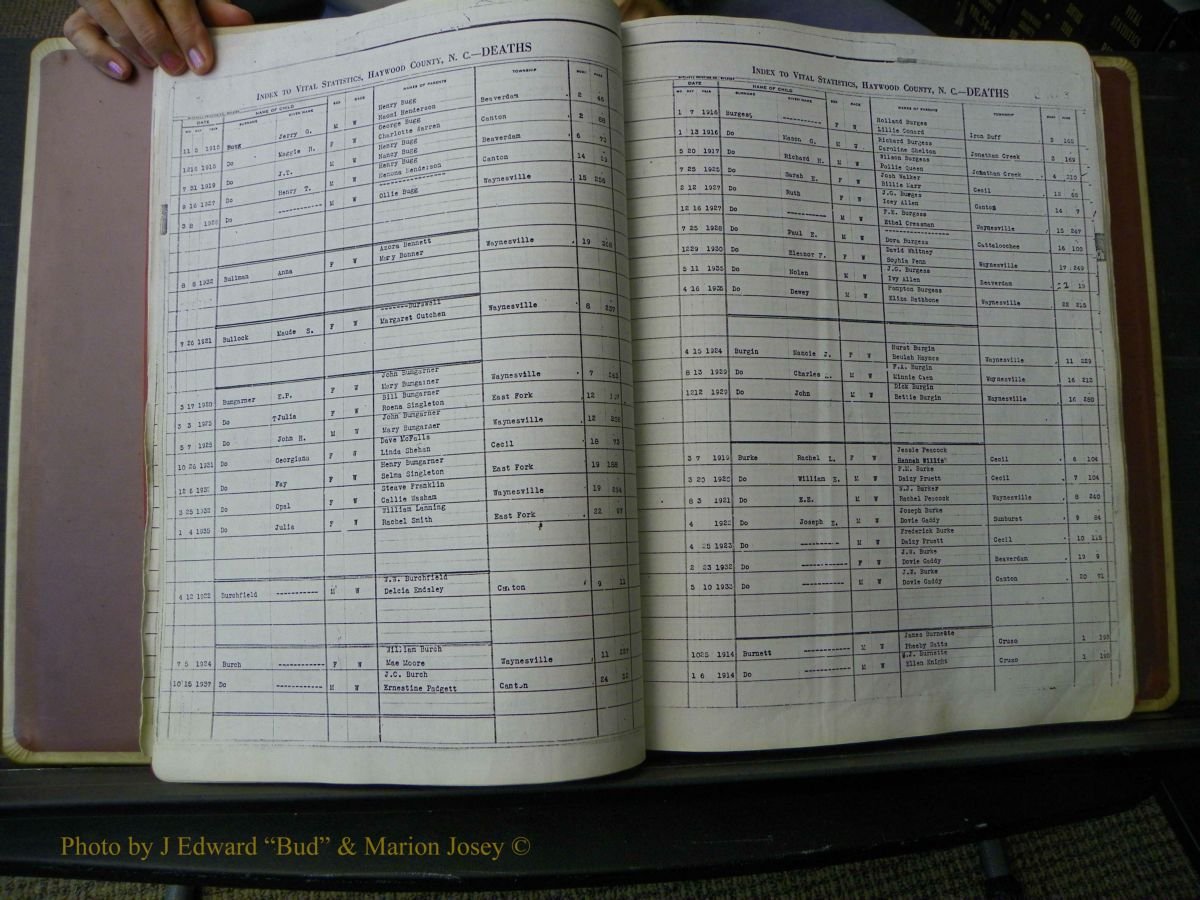 INDEX TO VITAL STATISTICS, HAYWOOD COUNTY, N. C.—DEATHS
DATE NAME OF CHILD NAMES OF PARENTS TOWNSHIP
MO DAY YEAR SURNAME GIVEN NAME SEX RACE BOOK PAGE
Henry Bugg
11 2 1915 Bugg Jerry O. M W Naomi Henderson Beaverdam 2 46
George Bugg
1216 1915 Do Maggie R. F W Charlotte Warren Canton 2 88
Henry Bugg
7 31 1919 Do J.T. M W Nancy Bugg Beaverdam 6
Henry Bugg
9 16 1927 Do Henry T. M W Henderson Canton 14
-----------
3 8 Do ----------- Ollie Bugg Waynesville 15 256
Azora Bennett
8 8 1932 Bullman Anna F W Mary Bonner Waynesville 19
-------Burswell
7 26 1921 Bullock Maude S. F W Margaret Cutchen Waynesville 8 237
John Bumgarner
3 17 1920 Bumgarner E.P. F W Mary Bumgarner Waynesville 7
Bill Bumgarner
3 3 1925 Do ?Julia F W Roena Singleton East Fork 12
John Bumgarner
5 7 1925 Do John H. M W Mary Bumgarner Waynesville 12
Dave McFalls
10 26 1931 Do Georgiana F W Linda Shehan Cecil 18 73
Henry Bumgarner
12 6 Do Fay F W Selma Singleton East Fork 19 188
Steave Franklin
3 25 1932 Do Opal F W Callie Washam Waynesville 19 254
William Lanning
1 4 1935 Do Julia F W Rachel Smith East Fork 22 97
W.N. Burchfield
4 12 1922 Burchfield ----------- M W Delcia Endsley Canton 9 11
William Burch
7 5 1924 Burch ----------- F W Mae Moore Waynesville 11
J.C. Burch
10 15 1937 Do ----------- M W Ernestine Padgett Canton 24
INDEX TO VITAL STATISTICS, HAYWOOD COUNTY, N. C.—DEATHS
DATE NAME OF CHILD NAMES OF PARENTS TOWNSHIP
MO DAY YEAR SURNAME GIVEN NAME SEX RACE BOOK PAGE
Holland Burges
1 7 1916 Burgess ---------- F W Lillie Conard Iron Duff 3 165
Richard Burgess
1 13 1916 Do Mason G. M W Caroline Shelton Jonathan Creek 3 169
Wilson Burgess
5 20 1917 Do Richard H. M W Pollie Queen Johathan Creek 4 210
Josh Walker
7 25 1925 Do Sarah E. F W Billie Marr Cecil 12 66
J.G. Burges
2 12 1927 Do Ruth F W Icey Allen Canton 14 7
F.M. Burgess
12 16 1927 Do ---------- M W Ethel Cressman Waynesville 15 247
-----------------
7 25 1928 Do Paul E. M W Dora Burgess Cattaloochee 16 100
David Whitney
1229 1930 Do Eleanor F. F W Sophia Penn Waynesville 17 249
J.G. Burgess
5 11 1935 Do Nolen M W Ivy Allen Beaverdam 19
Pompton Burgess
4 16 1935 Do Dewey M W Eliza Rathbone Waynesville 22 215
Hurst Burgin
4 15 1924 Burgin Nancie J. F W Beulah Haynes Waynesville 11 229
F.A. Burgin
8 13 1929 Do Charles M W Minnie Owen Waynesville 16 213
Dick Burgin
1212 1929 Do John M W Bettie Burgin Waynesville 16 250
Jessie Peacock
3 7 1919 Burke Rachel L. F W Hannah Willis Cecil 6 104
F.M. Burke
3 20 1920 Do William E. M W Daisy Pruett Cecil 7 104
W.J. Burker
8 3 1921 Do E.E. M W Rachel Peacock Waynesville 8 240
Joseph Burke
4 1922 Do Joseph E. M W Dovie Gaddy Sunburst 9 84
Frederick Burke
4 25 1923 Do ---------- M W Daisy Pruett Cecil 10 115
J.W. Burke
2 23 1932 Do ----------- F W Dovie Gaddy Beaverdam 19 9
J.W. Burke
5 10 1933 Do ----------- M W Dovie Gaddy Canton 20 71
James Burnette
1025 1914 Burnett ----------- M W Pheeby Cruso 1
W.J. Burnette
1 6 1914 Do ----------- M W Ellen Knight Cruso
VITAL
STATISTICS
Photo by J Edward “Bud” & Marion Josey ©